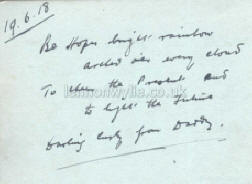 19.6.18
Be Hope's bright rainbow
arched o'er every cloud
To cheer the Present and
to light the Future
Darling from Daddy.
lemonwylie.co.uk